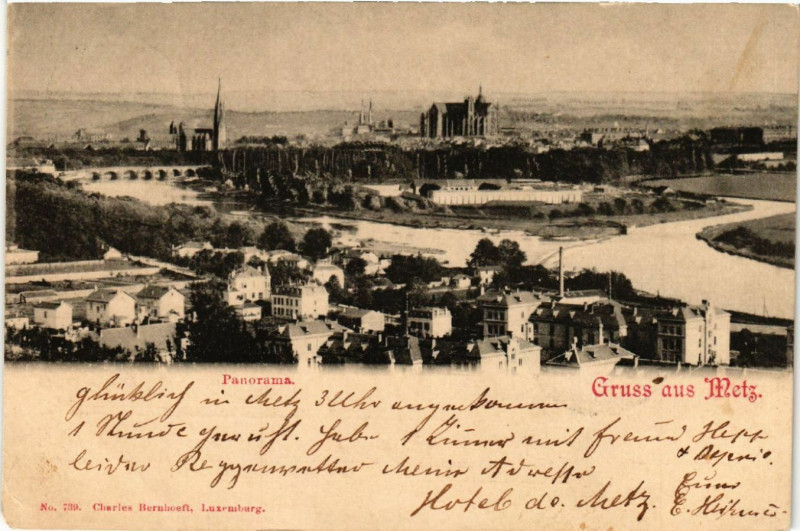 Panorama.
Gruss aus Metz.
glücklich in Metz 3 Uhr angekommen
1 Stunde geruht. habe 1 Zimmer mit freund Hepp
leider Reggenwetter Meine Adresse
Hotel do. Metz.
Euer
E.
No. 739. Charles Bernhoeft, Luxemburg.